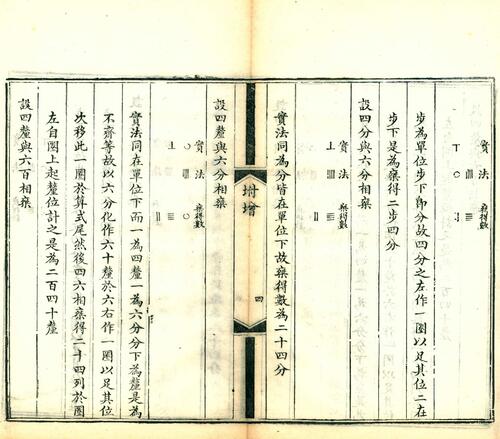 實 法 乘得數
步為單位步下即分故四分之左作一圈以足其位二在
步下是為乘得二步四分
設四分與六分相乘
實 法 乘得數
實法同為分皆在單位下故乘得數為二十四分
坿增
四
設四釐與六分相乘
實 法 乘得數
實法同在單位下而一為四釐一為六分分下為釐是為
不齊等故以六分化作六十釐於六右作一圈以足其位
次移此一圈於算式尾然後四六相乘得二十四列於圈
左自圈上起釐位計之是為二百四十釐
設四釐與六百相乘